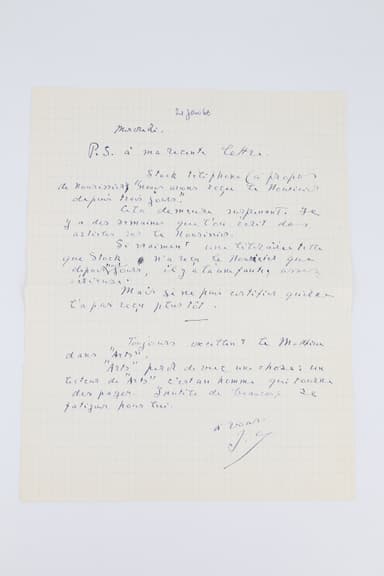 Mercredi.
P.S. à ma récente lettre.
Stock téléphone (à propos
de Nourissier) "nous avons reçu le Nourissier
depuis trois jours"
Cela demeure surprenant. Il
y a des semaines que l'on écrit des
articles sur le Nourissier.
Si vraiment une librairie telle
que Stock n'a reçu le Nourissier que
depuis 3 jours, il y a là une faute assez
sérieuse.
Mais je ne puis certifier qu'il ne
l'a pas reçu plus tôt.
Toujours excellent le
dans "Arts".
"Arts" perd de vue une chose : un
lecteur de "Arts" c'est un homme qui tourne
des pages. Inutile de beaucoup se
fatiguer pour lui.
à vous